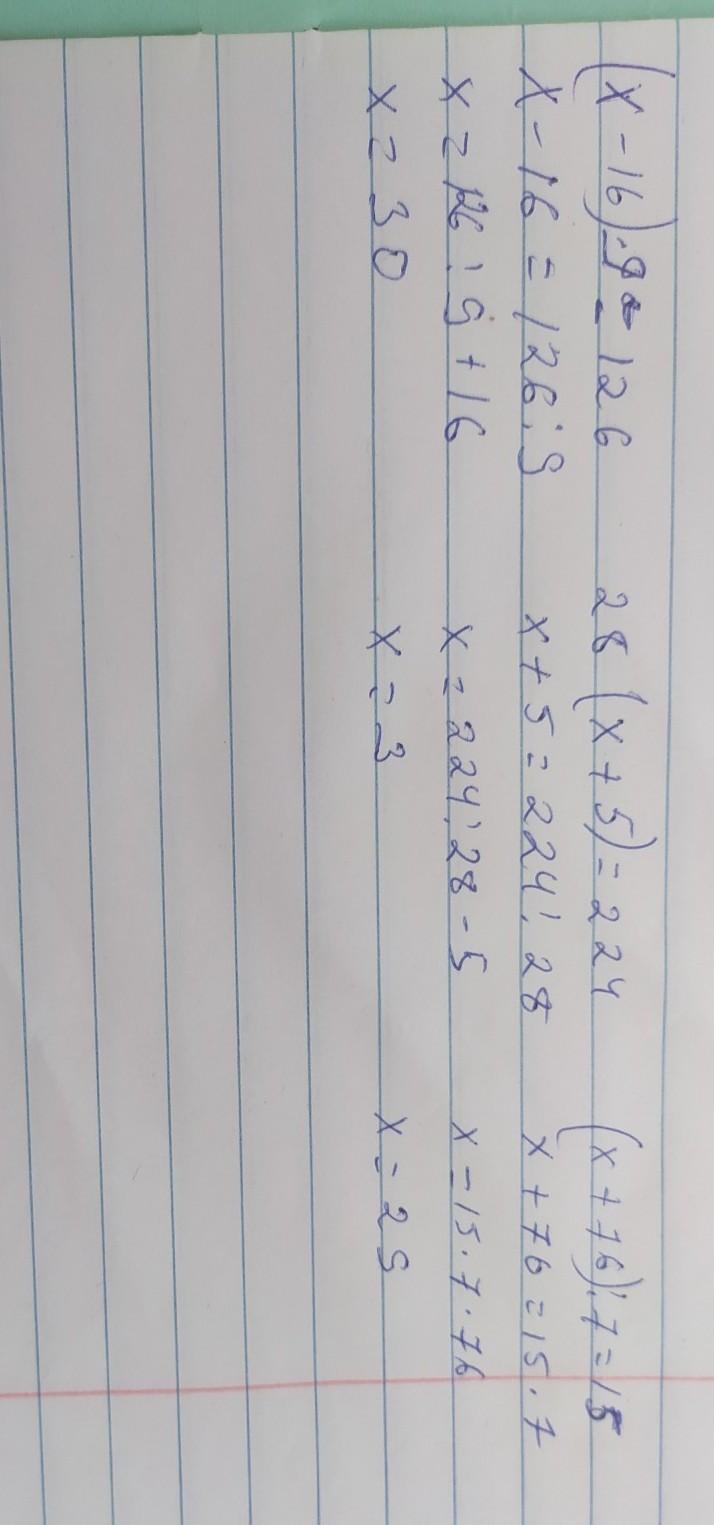 (x-16)·9=126 28(x+5)=224 (x+76):7=15
x-16=126:9 x+5=224:28 x+76=15·7
x=126:9+16 x=224:28-5 x=15·7·76
x=30 x=3 x=29